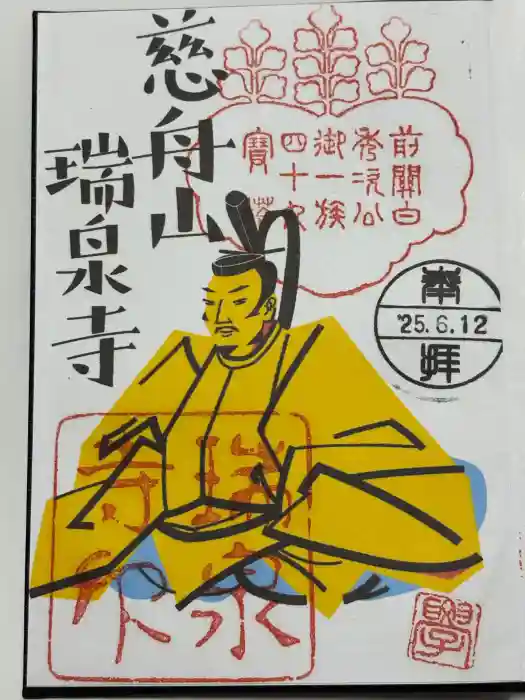 慈舟山
瑞泉寺
前關白
秀次公
御一族
四十九
寶塔
奉
'25.6.12
拜
瑞泉
寺印